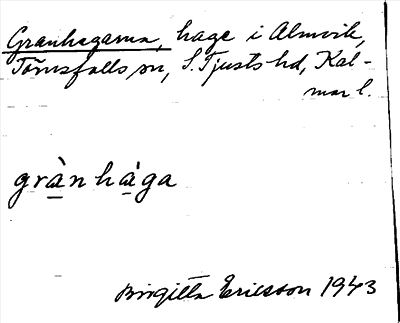 Granhagarna, hage i Almvik,
Törnsfalls sn, S. Tjusts hd, Kal-
mar l.
grànhàga
Birgitta Ericsson 1943